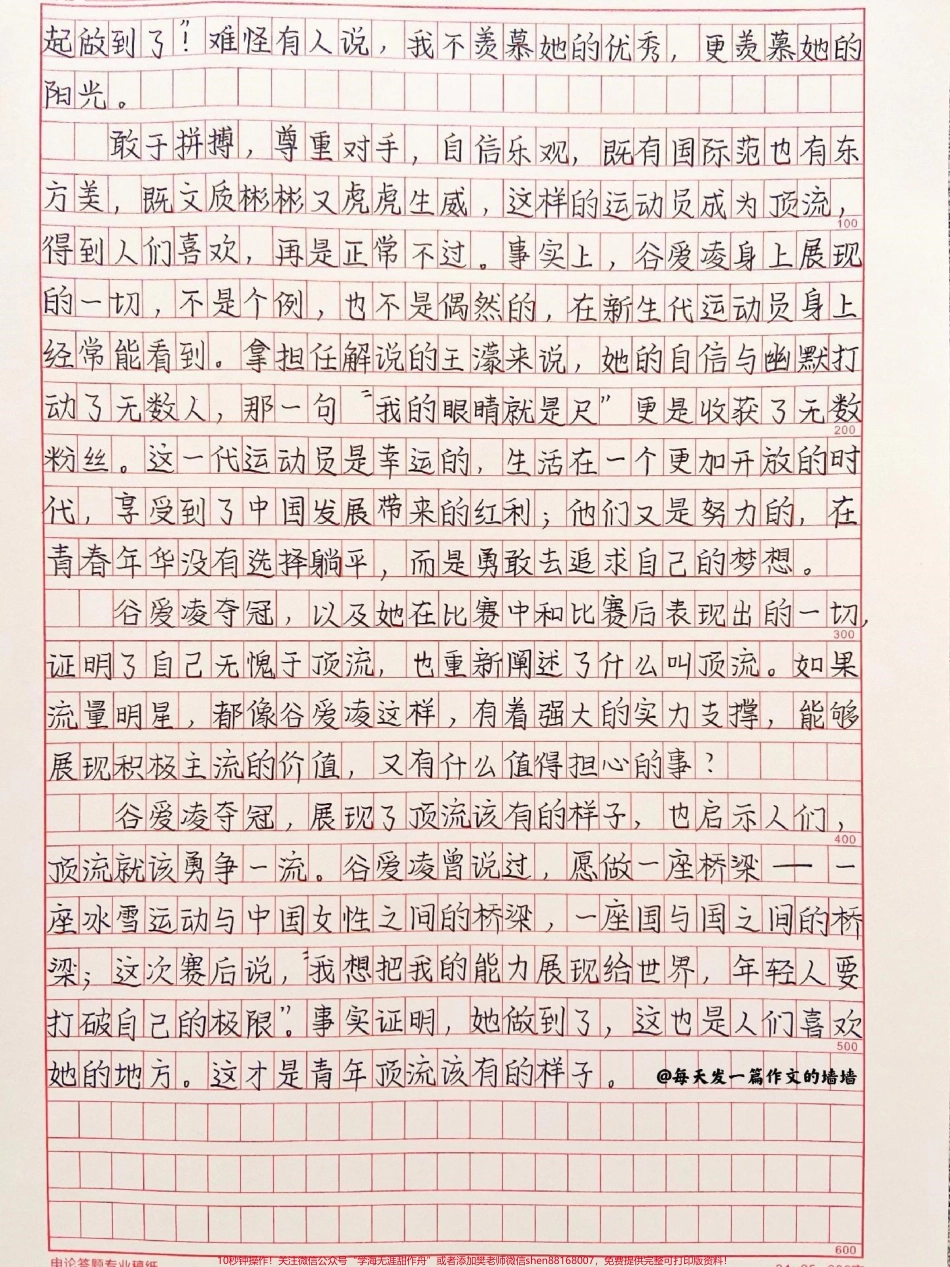 起做到了”！难怪有人说，我不羡慕她的优秀，更羡慕她的
阳光。
敢于拼搏，尊重对手，自信乐观，既有国际范也有东
方美，既文质彬彬又虎虎生威，这样的运动员成为顶流，
100
得到人们喜欢，再是正常不过。事实上，谷爱凌身上展现
的一切，不是个例，也不是偶然的，在新生代运动员身上
经常能看到。拿担任解说的王濛来说，她的自信与幽默打
动了无数人，那一句“我的眼睛就是尺”更是收获了无数
200
粉丝。这一代运动员是幸运的，生活在一个更加开放的时
代，享受到了中国发展带来的红利；他们又是努力的，在
青春年华没有选择躺平，而是勇敢去追求自己的梦想。
谷爱凌夺冠，以及她在比赛中和比赛后表现出的一切，
300
证明了自己无愧于顶流，也重新阐述了什么叫顶流。如果
流量明星，都像谷爱凌这样，有着强大的实力支撑，能够
展现积极主流的价值，又有什么值得担心的事？
谷爱凌夺冠，展现了顶流该有的样子，也启示人们，
400
顶流就该勇争一流。谷爱凌曾说过，愿做一座桥梁——一
座冰雪运动与中国女性之间的桥梁，一座国与国之间的桥
梁；这次赛后说，“我想把我的能力展现给世界，年轻人要
打破自己的极限”。事实证明，她做到了，这也是人们喜欢
500
她的地方。这才是青年顶流该有的样子。
@每天发一篇作文的墙墙
600
申论答题专业稿纸
10秒钟操作！关注微信公众号“学海无涯甜作舟”或者添加樊老师微信shen88168007，免费提供完整可打印版资料！